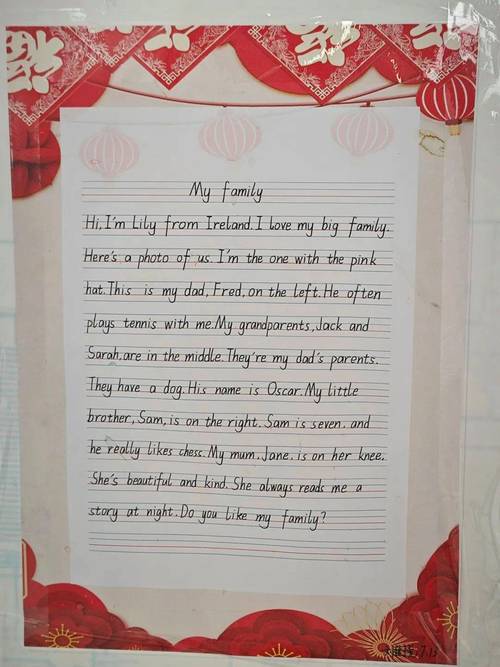 My family
Hi, I'm Lily from Ireland. I love my big family.
Here's a photo of us. I'm the one with the pink
hat. This is my dad, Fred, on the left. He often
plays tennis with me. My grandparents, Jack and
Sarah, are in the middle. They're my dad's parents.
They have a dog. His name is Oscar. My little
brother, Sam, is on the right. Sam is seven, and
he really likes chess. My mum, Jane, is on her knee.
She's beautiful and kind. She always reads me a
story at night. Do you like my family?
7.13